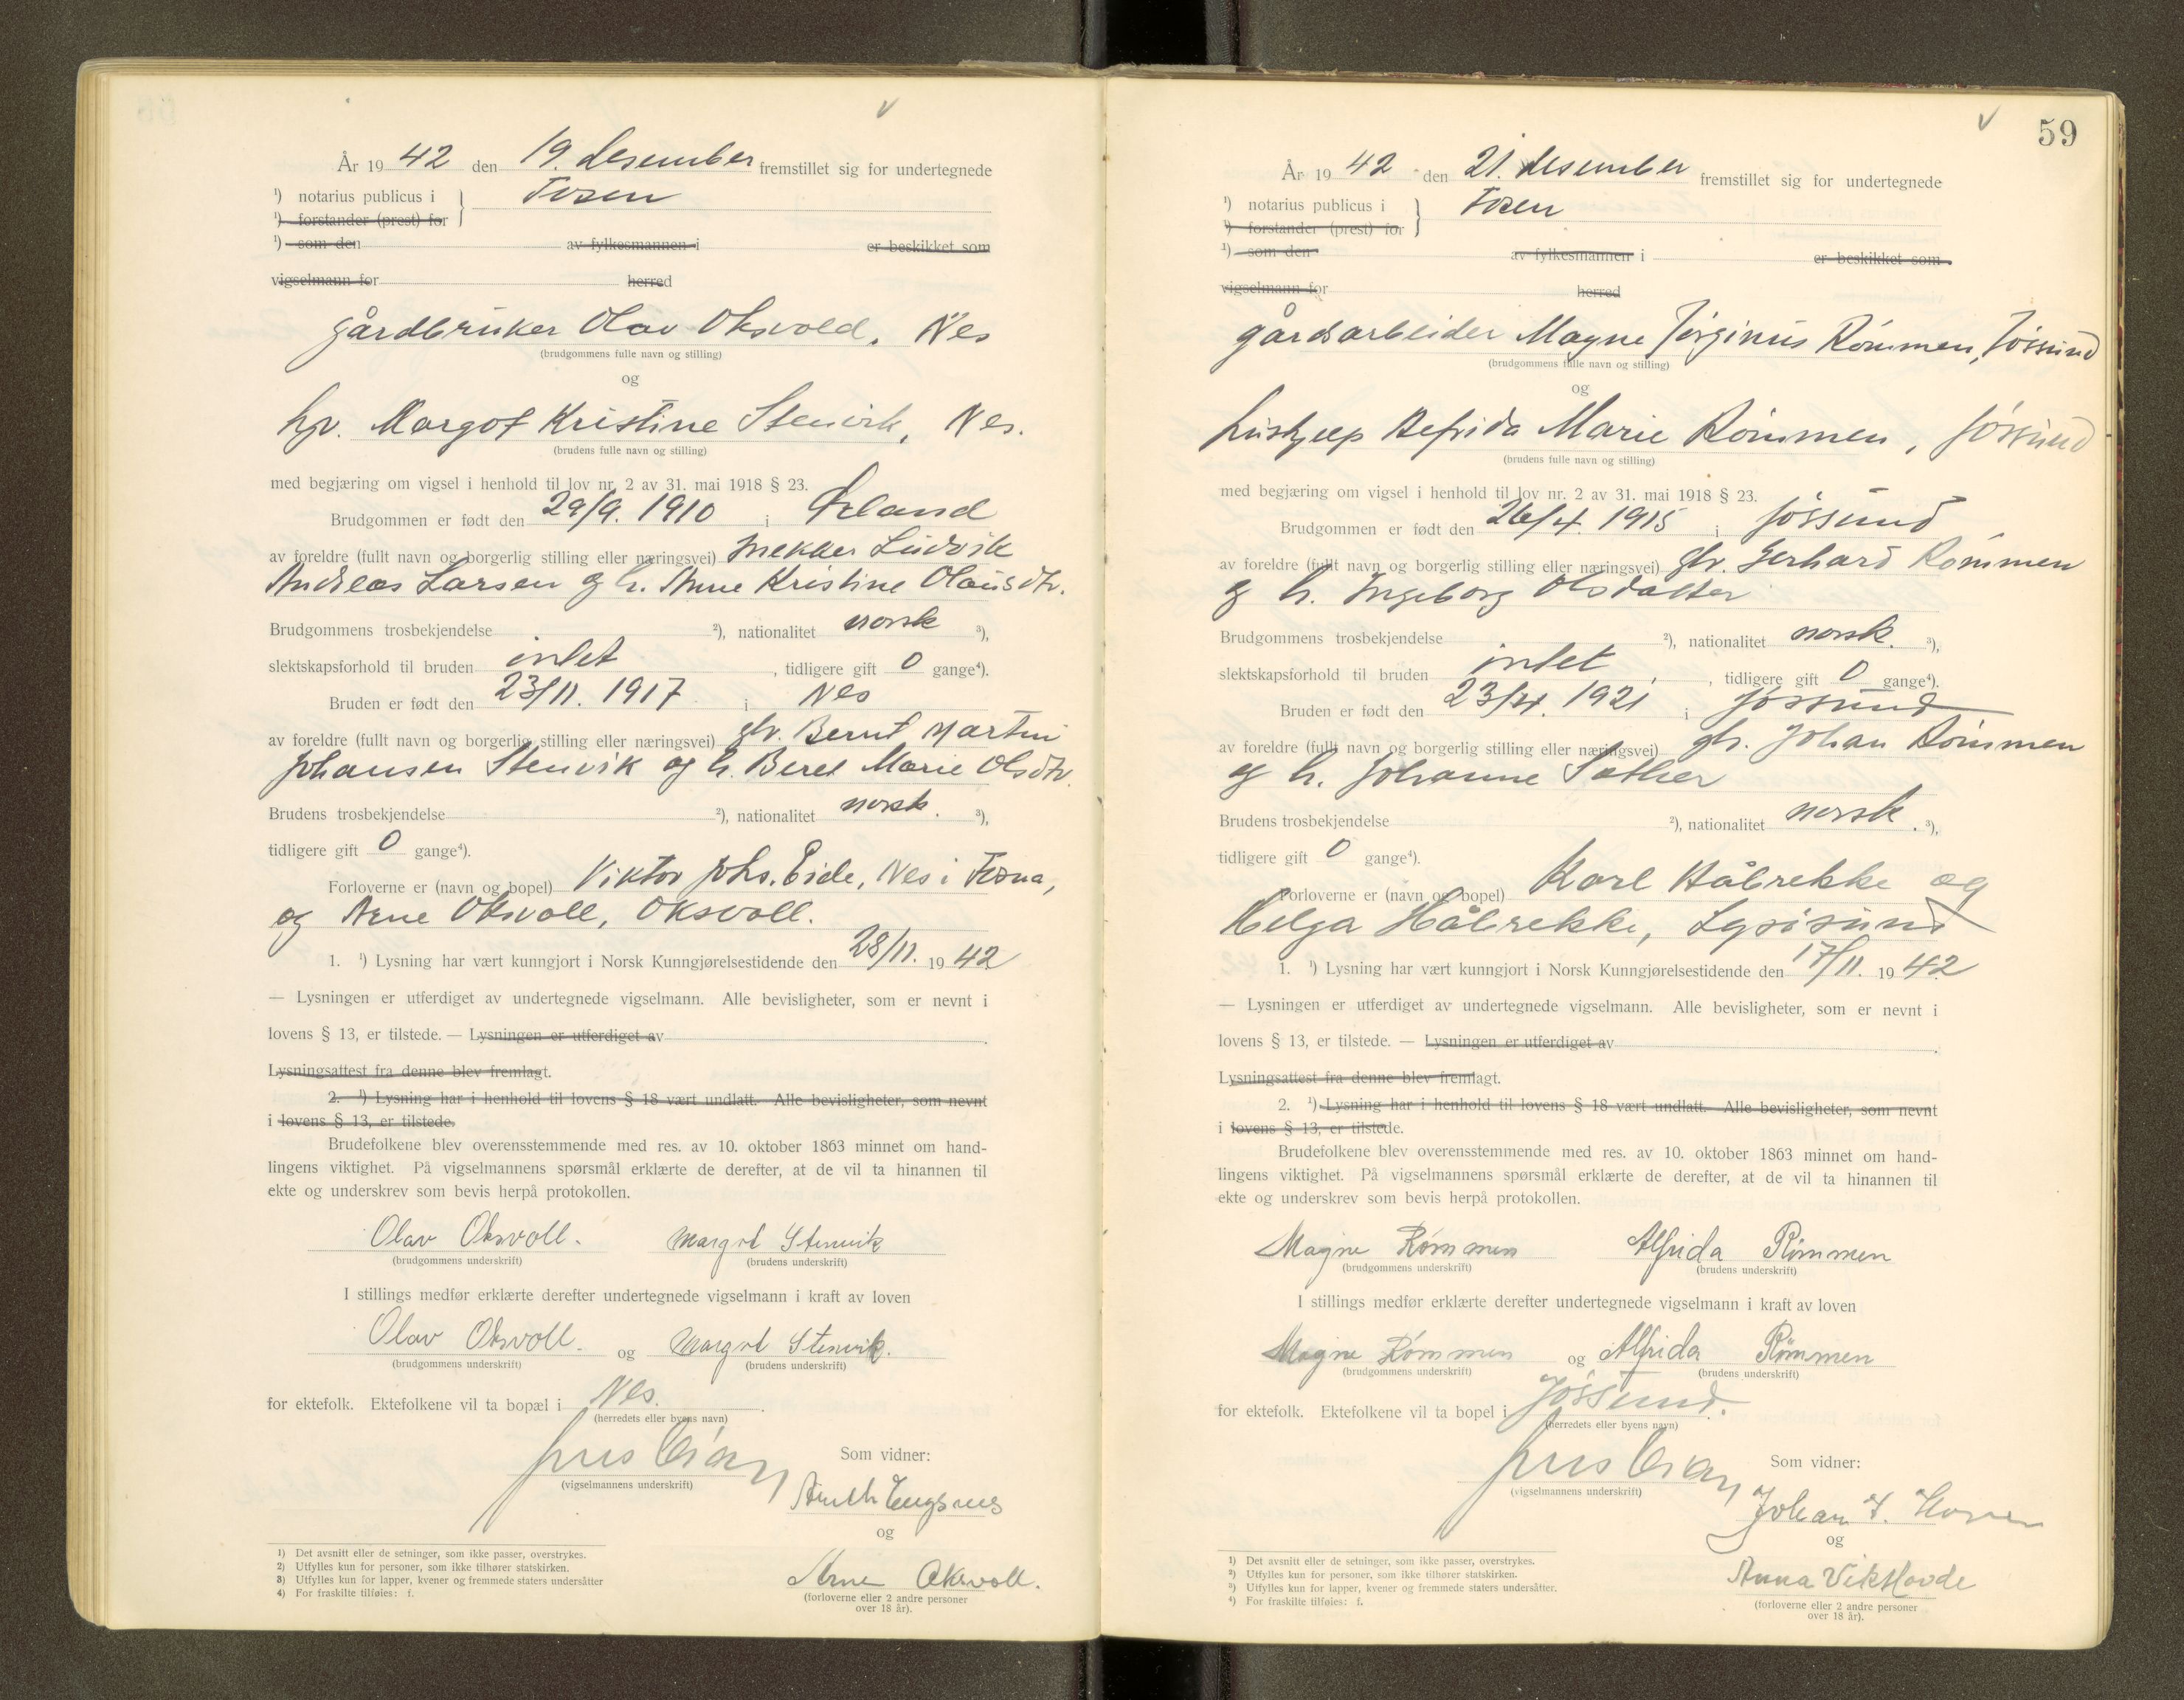 År 19 42 den 19. desember fremstillet sig for undertegnede
¹) notarius publicus i } Fosen
¹) forstander (prest) for
¹) som den av fylkesmannen i er beskikket som
vigselmann for herred
gårdbruker Olav Oksvold, Nes
(brudgommens fulle navn og stilling)
og
hp. Margot Kristine Stenvik, Nes.
(brudens fulle navn og stilling)
med begjæring om vigsel i henhold til lov nr. 2 av 31. mai 1918 § 23.
Brudgommen er født den 29/9. 1910 i Ørland
av foreldre (fullt navn og borgerlig stilling eller næringsvei) snekker Ludvik
Andreas Larsen og h. Anne Kristine Olausdtr.
Brudgommens trosbekjendelse ²), nationalitet norsk ³),
slektskapsforhold til bruden intet , tidligere gift 0 gange⁴).
Bruden er født den 23/11. 1917 i Nes
av foreldre (fullt navn og borgerlig stilling eller næringsvei) gbr. Bernt Martin
Johansen Stenvik og h. Beret Marie Olsdtr.
Brudens trosbekjendelse ²), nationalitet norsk. ³),
tidligere gift 0 gange⁴).
Forloverne er (navn og bopel) Viktor Johs. Eide, Nes i Fosna,
og Arne Oksvoll, Oksvoll.
1. ¹) Lysning har vært kunngjort i Norsk Kunngjørelsestidende den 28/11. 19 42
— Lysningen er utferdiget av undertegnede vigselmann. Alle bevisligheter, som er nevnt i
lovens § 13, er tilstede. — Lysningen er utferdiget av .
Lysningsattest fra denne blev fremlagt.
2. ¹) Lysning har i henhold til lovens § 18 vært undlatt. Alle bevisligheter, som nevnt
i lovens § 13, er tilstede.
Brudefolkene blev overensstemmende med res. av 10. oktober 1863 minnet om hand-
lingens viktighet. På vigselmannens spørsmål erklærte de derefter, at de vil ta hinannen til
ekte og underskrev som bevis herpå protokollen.
Olav Oksvoll. Margot Stenvik
(brudgommens underskrift) (brudens underskrift)
I stillings medfør erklærte derefter undertegnede vigselmann i kraft av loven
Olav Oksvoll. og Margot Stenvik.
(brudgommens underskrift) (brudens underskrift)
for ektefolk. Ektefolkene vil ta bopæl i Nes.
(herredets eller byens navn)
Som vidner:
(vigselmannens underskrift)
Engsnes
og
Arne Oksvoll.
(forloverne eller 2 andre personer
over 18 år).
1) Det avsnitt eller de setninger, som ikke passer, overstrykes.
2) Utfylles kun for personer, som ikke tilhører statskirken.
3) Utfylles kun for lapper, kvener og fremmede staters undersåtter
4) For fraskilte tilføies: f.
59
År 19 42 den 21. desember fremstillet sig for undertegnede
¹) notarius publicus i } Fosen
¹) forstander (prest) for
¹) som den av fylkesmannen i er beskikket som
vigselmann for herred
gårdsarbeider Magne Jørginus Rømmen, Jøssund
(brudgommens fulle navn og stilling)
og
hushjelp Alfrida Marie Rømmen, Jøssund
(brudens fulle navn og stilling)
med begjæring om vigsel i henhold til lov nr. 2 av 31. mai 1918 § 23.
Brudgommen er født den 26/4. 1915 i Jøssund
av foreldre (fullt navn og borgerlig stilling eller næringsvei) gbr. Gerhard Rømmen
og h. Ingeborg Olsdatter
Brudgommens trosbekjendelse ²), nationalitet norsk. ³),
slektskapsforhold til bruden intet , tidligere gift 0 gange⁴).
Bruden er født den 23/4. 1921 i Jøssund
av foreldre (fullt navn og borgerlig stilling eller næringsvei) gbr. Johan Rømmen
og h. Johanne Sæther
Brudens trosbekjendelse ²), nationalitet norsk. ³),
tidligere gift 0 gange⁴).
Forloverne er (navn og bopel) Karl Håbrekke og
Helga Håbrekke, Lysøsund
1. ¹) Lysning har vært kunngjort i Norsk Kunngjørelsestidende den 17/11. 19 42
— Lysningen er utferdiget av undertegnede vigselmann. Alle bevisligheter, som er nevnt i
lovens § 13, er tilstede. — Lysningen er utferdiget av .
Lysningsattest fra denne blev fremlagt.
2. ¹) Lysning har i henhold til lovens § 18 vært undlatt. Alle bevisligheter, som nevnt
i lovens § 13, er tilstede.
Brudefolkene blev overensstemmende med res. av 10. oktober 1863 minnet om hand-
lingens viktighet. På vigselmannens spørsmål erklærte de derefter, at de vil ta hinannen til
ekte og underskrev som bevis herpå protokollen.
Magne Rømmen Alfrida Rømmen
(brudgommens underskrift) (brudens underskrift)
I stillings medfør erklærte derefter undertegnede vigselmann i kraft av loven
Magne Rømmen og Alfrida Rømmen
(brudgommens underskrift) (brudens underskrift)
for ektefolk. Ektefolkene vil ta bopel i Jøssund.
(herredets eller byens navn)
Som vidner:
(vigselmannens underskrift)
Johan
og
Anna Vikskovde
(forloverne eller 2 andre personer
over 18 år).
1) Det avsnitt eller de setninger, som ikke passer, overstrykes.
²) Utfylles kun for personer, som ikke tilhører statskirken.
³) Utfylles kun for lapper, kvener og fremmede staters undersåtter.
⁴) For fraskilte tilføies: f.